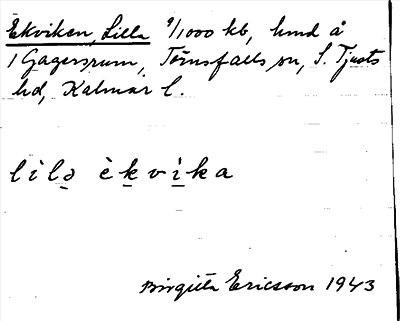 Ekviken, Lilla 9/1000 kb, hmd å
1 Gagersrum, Törnsfalls sn, S. Tjusts
hd, Kalmar l.
lìlə èkvika
Birgitta Ericsson 1943